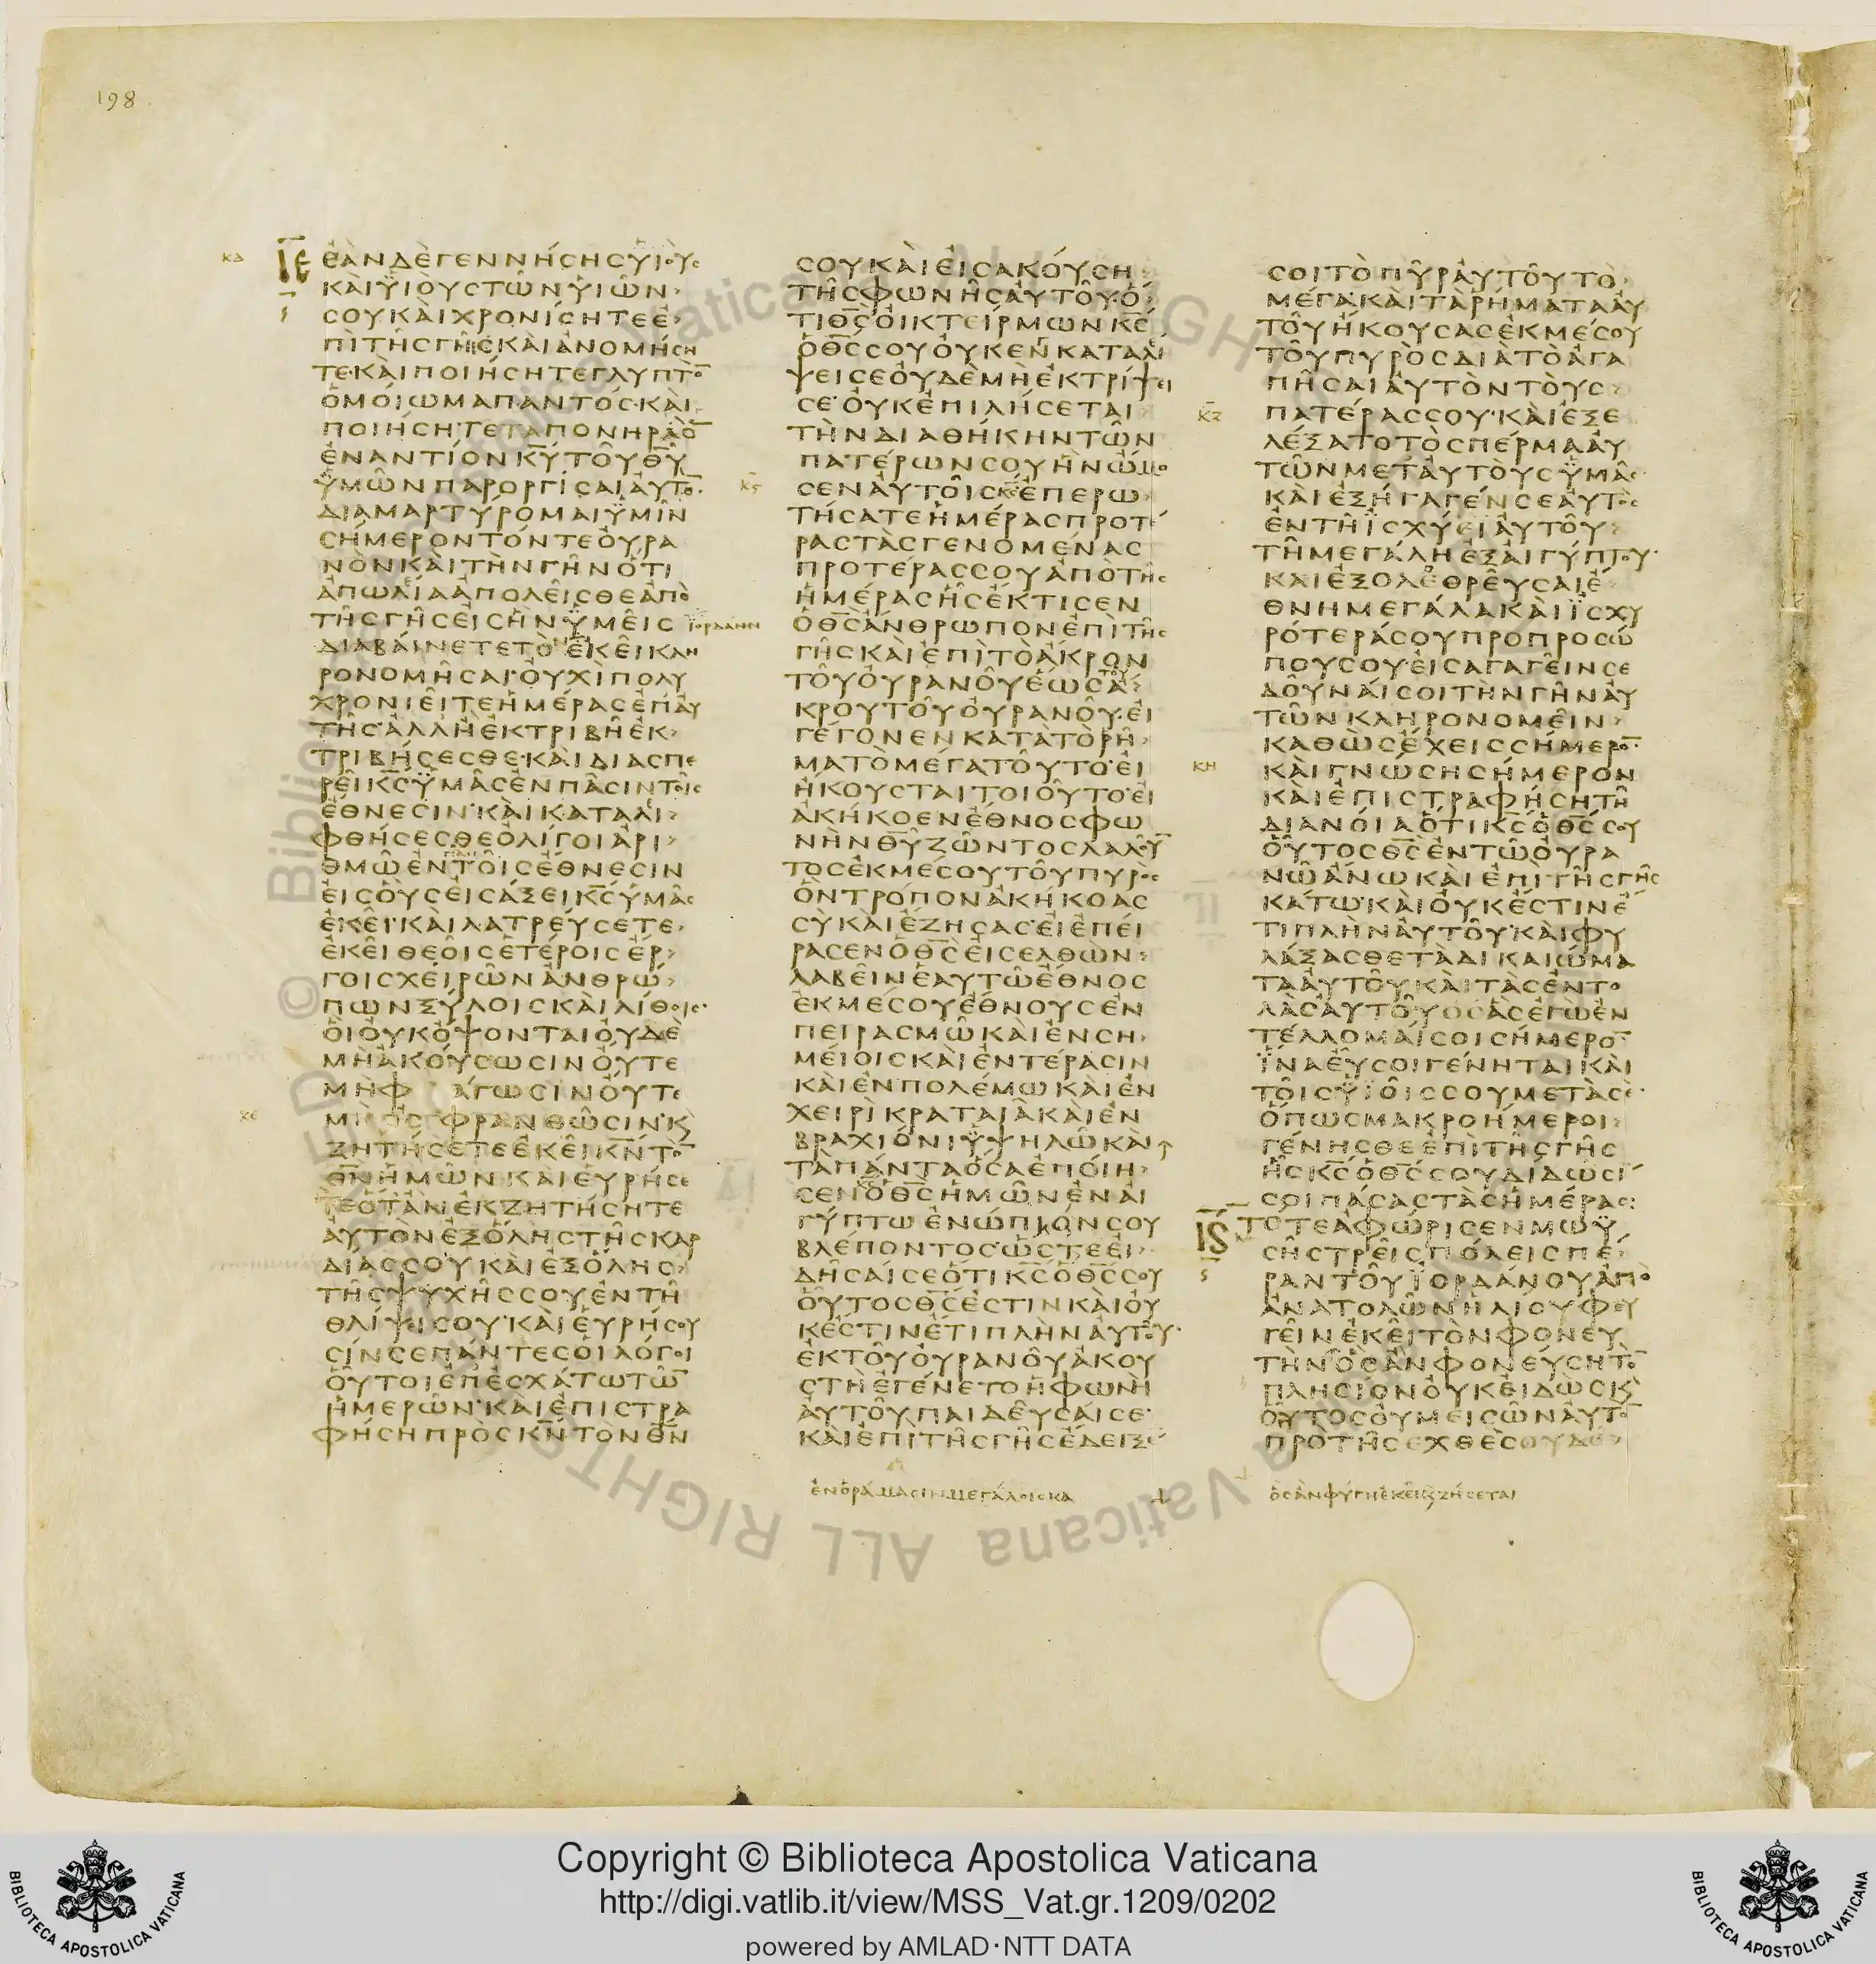 198
ΚΔ
ΙΕ
ΕΑΝΔΕΓΕΝΝΗϹΗϹΥΙΟΥϹ
ΚΑΙΥΙΟΥϹΤΩΝΥΙΩΝ
ϹΟΥΚΑΙΧΡΟΝΙϹΗΤΕΕ
ΠΙΤΗϹΓΗϹΚΑΙΑΝΟΜΗϹΗ
ΤΕ·ΚΑΙΠΟΙΗϹΗΤΕΓΛΥΠΤΟ̅
ΟΜΟΙΩΜΑΠΑΝΤΟϹ·ΚΑΙ
ΠΟΙΗϹΗΤΕΤΑΠΟΝΗΡΑ
ΕΝΑΝΤΙΟΝΚ̅Υ̅ΤΟΥΘ̅Υ̅
ΥΜΩΝΠΑΡΟΡΓΙϹΑΙΑΥΤΟ̅·
ΔΙΑΜΑΡΤΥΡΟΜΑΙΥΜΙΝ
ϹΗΜΕΡΟΝΤΟΝΤΕΟΥΡΑ
ΝΟΝΚΑΙΤΗΝΓΗΝΟΤΙ
ΑΠΩΛΙΑΑΠΟΛΕΙϹΘΕΑΠΟ
ΤΗϹΓΗϹΕΙϹΗΝΥΜΕΙϹ
ΔΙΑΒΑΙΝΕΤΕΤΟ̅ΕΚΕΙΚΛΗ
ΡΟΝΟΜΗϹΑΙ·ΟΥΧΙΠΟΛΥ
ΧΡΟΝΙΕΙΤΕΗΜΕΡΑϹΕΠΑΥ
ΤΗϹ·ΑΛΛΗΕΚΤΡΙΒΗΕΚ
ΤΡΙΒΗϹΕϹΘΕ·ΚΑΙΔΙΑϹΠΕ
ΡΕΙΚ̅Ϲ̅ΥΜΑϹΕΝΠΑϹΙΝΤΟΙϹ
ΕΘΝΕϹΙΝ·ΚΑΙΚΑΤΑΛΙ
ΦΘΗϹΕϹΘΕΟΛΙΓΟΙΑΡΙ
ΘΜΩΕΝΤΟΙϹΕΘΝΕϹΙΝ
ΕΙϹΟΥϹΕΙϹΑΞΕΙΚ̅Ϲ̅ΥΜΑϹ
ΕΚΕΙ·ΚΑΙΛΑΤΡΕΥϹΕΤΕ
ΕΚΕΙΘΕΟΙϹΕΤΕΡΟΙϹΕΡ
ΓΟΙϹΧΕΙΡΩΝΑΝΘΡΩ
ΠΩΝΞΥΛΟΙϹΚΑΙΛΙΘΟΙϹ·
ΟΙΟΥΚΟΨΟΝΤΑΙΟΥΔΕ
ΜΗΑΚΟΥϹΩϹΙΝΟΥΤΕ
ΜΗΦΑΓΩϹΙΝΟΥΤΕ
ΜΗΟϹΦΡΑΝΘΩϹΙΝ·Κ
ΖΗΤΗϹΕΤΕΕΚΕΙΚ̅Ν̅ΤΟ̅
Θ̅Ν̅ΗΜΩΝΚΑΙΕΥΡΗϹΕ
ΤΕΟΤΑΝΕΚΖΗΤΗϹΗΤΕ
ΑΥΤΟΝΕΞΟΛΗϹΤΗϹΚΑΡ
ΔΙΑϹϹΟΥΚΑΙΕΞΟΛΗϹ
ΤΗϹΨΥΧΗϹϹΟΥΕΝΤΗ
ΘΛΙΨΕΙϹΟΥ·ΚΑΙΕΥΡΗϹΟΥ
ϹΙΝϹΕΠΑΝΤΕϹΟΙΛΟΓΟΙ
ΟΥΤΟΙΕΠΕϹΧΑΤΩΤΩ̅
ΗΜΕΡΩΝ·ΚΑΙΕΠΙϹΤΡΑ
ΦΗϹΗΠΡΟϹΚ̅Ν̅ΤΟΝΘ̅Ν̅
ΙΟΡΔΑΝΗΝ
ΚΕ
ϹΟΥΚΑΙΕΙϹΑΚΟΥϹΗ
ΤΗϹΦΩΝΗϹΑΥΤΟΥ·Ο
ΤΙΘ̅Ϲ̅ΟΙΚΤΕΙΡΜΩΝΚ̅Ϲ̅
ΟΘ̅Ϲ̅ϹΟΥΟΥΚΕΝΚΑΤΑΛΙ
ΨΕΙϹΕΟΥΔΕΜΗΕΚΤΡΙΨΕΙ
ϹΕ·ΟΥΚΕΠΙΛΗϹΕΤΑΙ
ΤΗΝΔΙΑΘΗΚΗΝΤΩΝ
ΠΑΤΕΡΩΝϹΟΥΗΝΩΜΟ
ΚϚ
ϹΕΝΑΥΤΟΙϹΚ̅Ϲ̅ΕΠΕΡΩ
ΤΗϹΑΤΕΗΜΕΡΑϹΠΡΟΤΕ
ΡΑϹΤΑϹΓΕΝΟΜΕΝΑϹ
ΠΡΟΤΕΡΑϹϹΟΥΑΠΟΤΗϹ
ΗΜΕΡΑϹΗϹΕΚΤΙϹΕΝ
ΟΘ̅Ϲ̅ΑΝΘΡΩΠΟΝΕΠΙΤΗϹ
ΓΗϹΚΑΙΕΠΙΤΟΑΚΡΟΝ
ΤΟΥΟΥΡΑΝΟΥΕΩϹΑ
ΚΡΟΥΤΟΥΟΥΡΑΝΟΥ·ΕΙ
ΓΕΓΟΝΕΝΚΑΤΑΤΟΡΗ
ΜΑΤΟΜΕΓΑΤΟΥΤΟ·ΕΙ
ΗΚΟΥϹΤΑΙΤΟΙΟΥΤΟ·ΕΙ
ΑΚΗΚΟΕΝΕΘΝΟϹΦΩ
ΝΗΝΘ̅Υ̅ΖΩΝΤΟϹΛΑΛΟΥ̅
ΤΟϹΕΚΜΕϹΟΥΤΟΥΠΥΡΟϹ
ΟΝΤΡΟΠΟΝΑΚΗΚΟΑϹ
ϹΥΚΑΙΕΖΗϹΑϹ·ΕΙΕΠΕΙ
ΡΑϹΕΝΟΘ̅Ϲ̅ΕΙϹΕΛΘΩΝ
ΛΑΒΕΙΝΕΑΥΤΩΕΘΝΟϹ
ΕΚΜΕϹΟΥΕΘΝΟΥϹΕΝ
ΠΕΙΡΑϹΜΩΚΑΙΕΝϹΗ
ΜΕΙΟΙϹΚΑΙΕΝΤΕΡΑϹΙΝ
ΚΑΙΕΝΠΟΛΕΜΩΚΑΙΕΝ
ΧΕΙΡΙΚΡΑΤΑΙΑΚΑΙΕΝ
ΒΡΑΧΙΟΝΙΥΨΗΛΩΚΑΙ
ΤΑΠΑΝΤΑΟϹΑΕΠΟΙΗ
ϹΕΝΟΘ̅Ϲ̅ΗΜΩΝΕΝΑΙ
ΓΥΠΤΩΕΝΩΠΙΟΝϹΟΥ
ΒΛΕΠΟΝΤΟϹ·ΩϹΤΕΕΙ
ΔΗϹΑΙϹΕΟΤΙΚ̅Ϲ̅ΟΘ̅Ϲ̅ϹΟΥ
ΟΥΤΟϹΘ̅Ϲ̅ΕϹΤΙΝΚΑΙΟΥ
ΚΕϹΤΙΝΕΤΙΠΛΗΝΑΥΤΟΥ·
ΕΚΤΟΥΟΥΡΑΝΟΥΑΚΟΥ
ϹΤΗΕΓΕΝΕΤΟΗΦΩΝΗ
ΑΥΤΟΥΠΑΙΔΕΥϹΑΙϹΕ·
ΚΑΙΕΠΙΤΗϹΓΗϹΕΔΕΙΞΕ
ΕΝΟΡΑΜΑϹΙΝΜΕΓΑΛΟΙϹΚΑ
ϹΟΙΤΟΠΥΡΑΥΤΟΥΤΟ
ΜΕΓΑ·ΚΑΙΤΑΡΗΜΑΤΑΑΥ
ΤΟΥΗΚΟΥϹΑϹΕΚΜΕϹΟΥ
ΤΟΥΠΥΡΟϹΔΙΑΤΟΑΓΑ
ΠΗϹΑΙΑΥΤΟΝΤΟΥϹ
ΚΖ
ΠΑΤΕΡΑϹϹΟΥ·ΚΑΙΕΞΕ
ΛΕΞΑΤΟΤΟϹΠΕΡΜΑΑΥ
ΤΩΝΜΕΤΑΥΤΟΥϹΥΜΑϹ
ΚΑΙΕΞΗΓΑΓΕΝϹΕΑΥΤΟϹ
ΕΝΤΗΙϹΧΥΕΙΑΥΤΟΥ
ΤΗΜΕΓΑΛΗΕΞΑΙΓΥΠΤΟΥ·
ΚΑΙΕΞΟΛΕΘΡΕΥϹΑΙΕ
ΘΝΗΜΕΓΑΛΑΚΑΙΙϹΧΥ
ΡΟΤΕΡΑϹΟΥΠΡΟΠΡΟϹΩ
ΠΟΥϹΟΥ·ΕΙϹΑΓΑΓΕΙΝϹΕ
ΔΟΥΝΑΙϹΟΙΤΗΝΓΗΝΑΥ
ΤΩΝΚΛΗΡΟΝΟΜΕΙΝ
ΚΑΘΩϹΕΧΕΙϹϹΗΜΕΡΟ̅·
ΚΗ
ΚΑΙΓΝΩϹΗϹΗΜΕΡΟΝ
ΚΑΙΕΠΙϹΤΡΑΦΗϹΗΤΗ
ΔΙΑΝΟΙΑΟΤΙΚ̅Ϲ̅ΟΘ̅Ϲ̅ϹΟΥ
ΟΥΤΟϹΘ̅Ϲ̅ΕΝΤΩΟΥΡΑ
ΝΩΑΝΩΚΑΙΕΠΙΤΗϹΓΗϹ
ΚΑΤΩ·ΚΑΙΟΥΚΕϹΤΙΝΕ
ΤΙΠΛΗΝΑΥΤΟΥ·ΚΑΙΦΥ
ΛΑΞΑϹΘΕΤΑΔΙΚΑΙΩΜΑ
ΤΑΑΥΤΟΥΚΑΙΤΑϹΕΝΤΟ
ΛΑϹΑΥΤΟΥΟϹΑϹΕΓΩΕΝ
ΤΕΛΛΟΜΑΙϹΟΙϹΗΜΕΡΟ̅
ΙΝΑΕΥϹΟΙΓΕΝΗΤΑΙΚΑΙ
ΤΟΙϹΥΙΟΙϹϹΟΥΜΕΤΑϹΕ·
ΟΠΩϹΜΑΚΡΟΗΜΕΡΟΙ
ΓΕΝΗϹΘΕΕΠΙΤΗϹΓΗϹ
ΗϹΚ̅Ϲ̅ΟΘ̅Ϲ̅ϹΟΥΔΙΔΩϹΙ
ϹΟΙΠΑϹΑϹΤΑϹΗΜΕΡΑϹ:
ΙϚ
ΤΟΤΕΑΦΩΡΙϹΕΝΜΩΥ
ϹΗϹΤΡΕΙϹΠΟΛΕΙϹΠΕ
ΡΑΝΤΟΥΙΟΡΔΑΝΟΥΑΠΟ
ΑΝΑΤΟΛΩΝΗΛΙΟΥΦΕΥ
ΓΕΙΝΕΚΕΙΤΟΝΦΟΝΕΥ
ΤΗΝΟϹΑΝΦΟΝΕΥϹΗΤΟ̅
ΠΛΗϹΙΟΝΟΥΚΕΙΔΩϹΚ
ΟΥΤΟϹΟΥΜΕΙϹΩΝΑΥΤΟ̅
ΠΡΟΤΗϹΕΧΘΕϹΟΥΔΕ
ΟϹΑΝΦΥΓΗΕΚΕΙΚΖΗϹΕΤΑΙ
Copyright © Biblioteca Apostolica Vaticana
http://digi.vatlib.it/view/MSS_Vat.gr.1209/0202
powered by AMLAD·NTT DATA
BIBLIOTECA APOSTOLICA VATICANA
BIBLIOTECA APOSTOLICA VATICANA